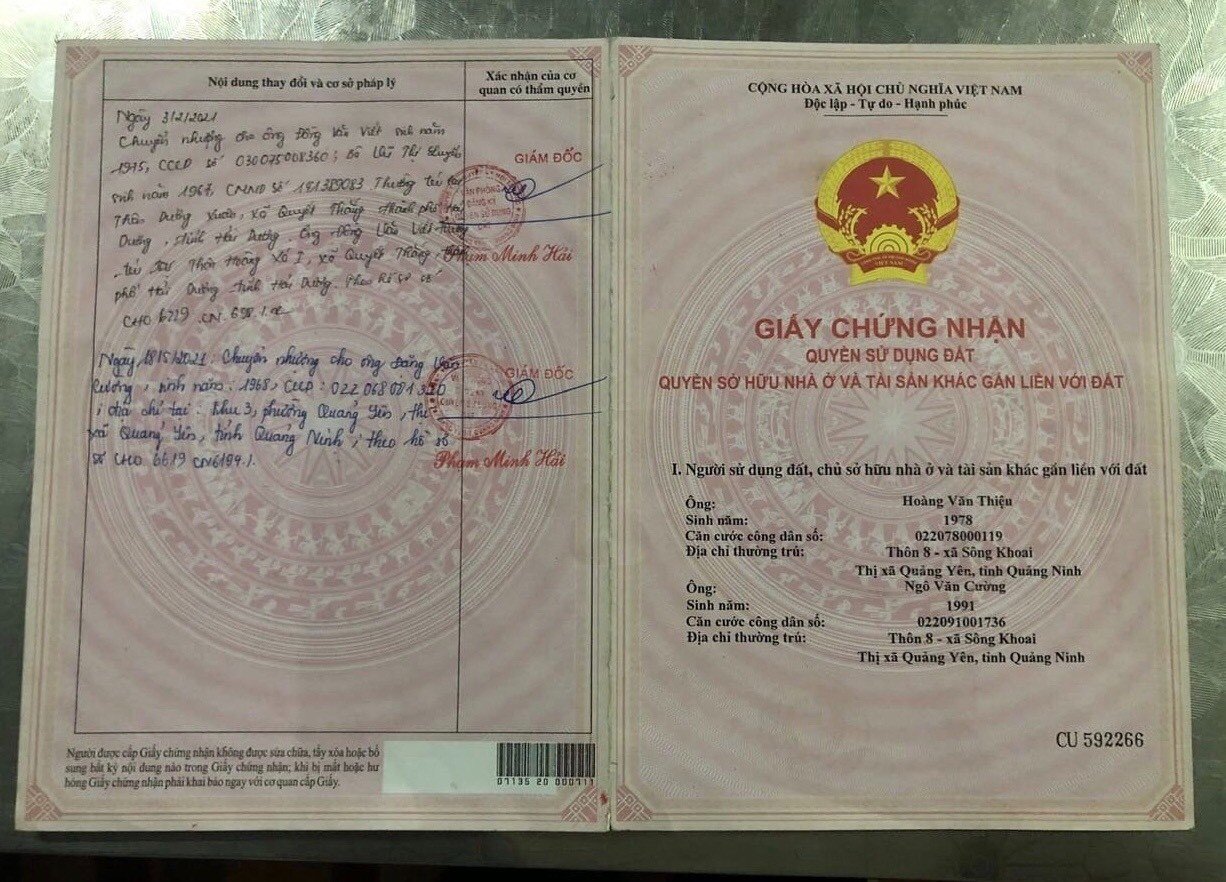 Nội dung thay đổi và cơ sở pháp lý
Xác nhận của cơ
quan có thẩm quyền
Ngày 3/2/2021
Chuyển nhượng cho ông Đồng Văn Viết sinh năm
1975, CCCD số 030075008360; Bà Vũ Thị
sinh năm 1967, CMND số Thường trú tại
Thôn Dưỡng Xuân, xã Quyết Thắng thành phố Hải
Dương, tỉnh Hải Dương. Ông Đồng Văn Viết Thường
trú tại Thôn Hoàng Xá I, xã Quyết Thắng thành
phố Hải Dương tỉnh Hải Dương. Theo hồ sơ số
CN
GIÁM ĐỐC
Phạm Minh Hải
Ngày 18/5/2021. Chuyển nhượng cho ông Đặng Văn
Cương, sinh năm: 1968, CCCD: 022068081320
, địa chỉ tại: Khu 3, phường Quảng Yên, thị
xã Quảng Yên, tỉnh Quảng Ninh, theo hồ sơ
số
GIÁM ĐỐC
Phạm Minh Hải
Người được cấp Giấy chứng nhận không được sửa chữa, tẩy xóa hoặc bổ
sung bất kỳ nội dung nào trong Giấy chứng nhận; khi bị mất hoặc hư
hỏng Giấy chứng nhận phải khai báo ngay với cơ quan cấp Giấy.
07135 20 000711
CỘNG HÒA XÃ HỘI CHỦ NGHĨA VIỆT NAM
Độc lập - Tự do - Hạnh phúc
VIỆT NAM
GIẤY CHỨNG NHẬN
QUYỀN SỬ DỤNG ĐẤT
QUYỀN SỞ HỮU NHÀ Ở VÀ TÀI SẢN KHÁC GẮN LIỀN VỚI ĐẤT
I. Người sử dụng đất, chủ sở hữu nhà ở và tài sản khác gắn liền với đất
Ông: Hoàng Văn Thiệu
Sinh năm: 1978
Căn cước công dân số: 022078000119
Địa chỉ thường trú: Thôn 8 - xã Sông Khoai
Thị xã Quảng Yên, tỉnh Quảng Ninh
Ông: Ngô Văn Cường
Sinh năm: 1991
Căn cước công dân số: 022091001736
Địa chỉ thường trú: Thôn 8 - xã Sông Khoai
Thị xã Quảng Yên, tỉnh Quảng Ninh
CU 592266